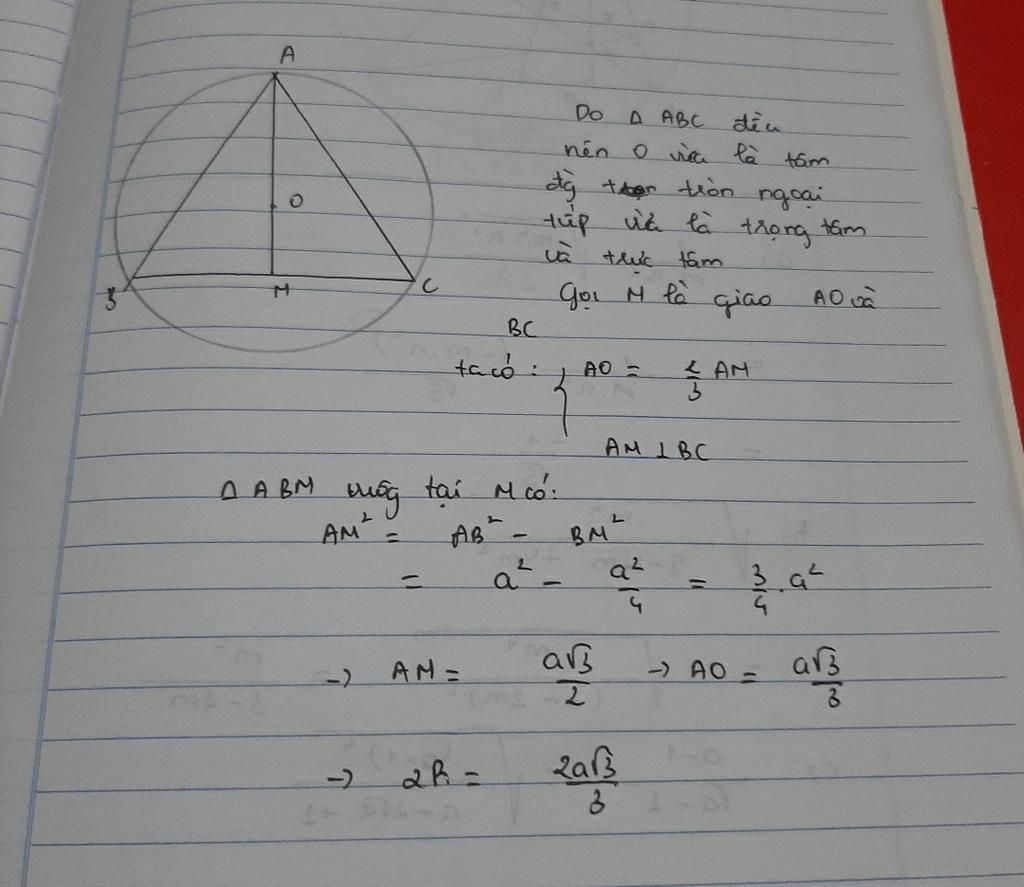 A
O
B
M
C
Do Δ ABC đều
nên O vừa là tâm
đg tròn ngoại
tiếp vừa là trọng tâm
và trực tâm
Gọi M là giao AO và
BC
ta có : { AO = 2/3 AM
AM ⊥ BC
Δ ABM vuôg tại M có:
AM² = AB² - BM²
= a² - a²/4 = 3/4 . a²
→ AM = a√3/2 → AO = a√3/3
→ 2R = 2a√3/3